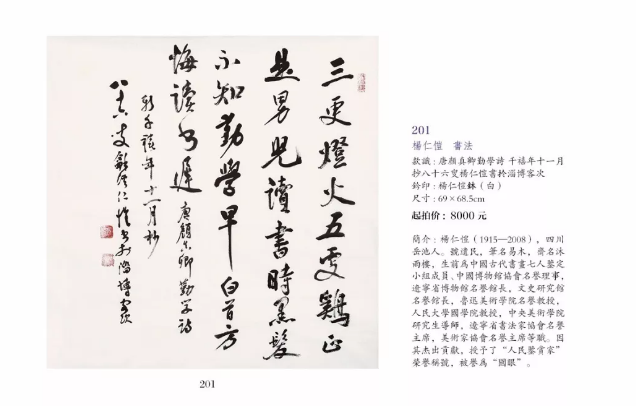 三更燈火五更鷄正
是男兒讀書時黑髮
不知勤學早白首方
悔讀書遲 唐顏真卿勤學詩
新千禧年十一月杪
八十六叟龢溪仁愷書於淄博客次
201
201
楊仁愷 書法
款識：唐顏真卿勤學詩 千禧年十一月
抄八十六叟楊仁愷書於淄博客次
鈐印：楊仁愷鉥（白）
尺寸：69×68.5cm
起拍價：8000 元
簡介：楊仁愷（1915—2008），四川
岳池人。號遺民，筆名易木，齋名沐
雨樓，生前爲中國古代書畫七人鑒定
小組成員、中國博物館協會名譽理事，
遼寧省博物館名譽館長，文史研究館
名譽館長，魯迅美術學院名譽教授，
人民大學國學院教授，中央美術學院
研究生導師，遼寧省書法家協會名譽
主席，美術家協會名譽主席等職。因
其杰出貢獻，授予了“人民鑒賞家”
榮譽稱號，被譽爲“國眼”。